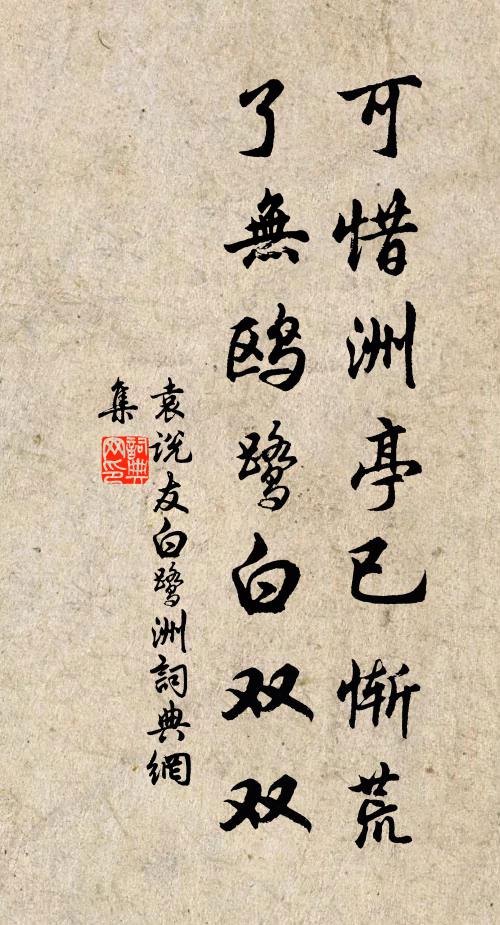 可惜洲亭已惭荒
了無鸥鹭白双双
袁说友白鹭洲詞典網
集
詞典網印